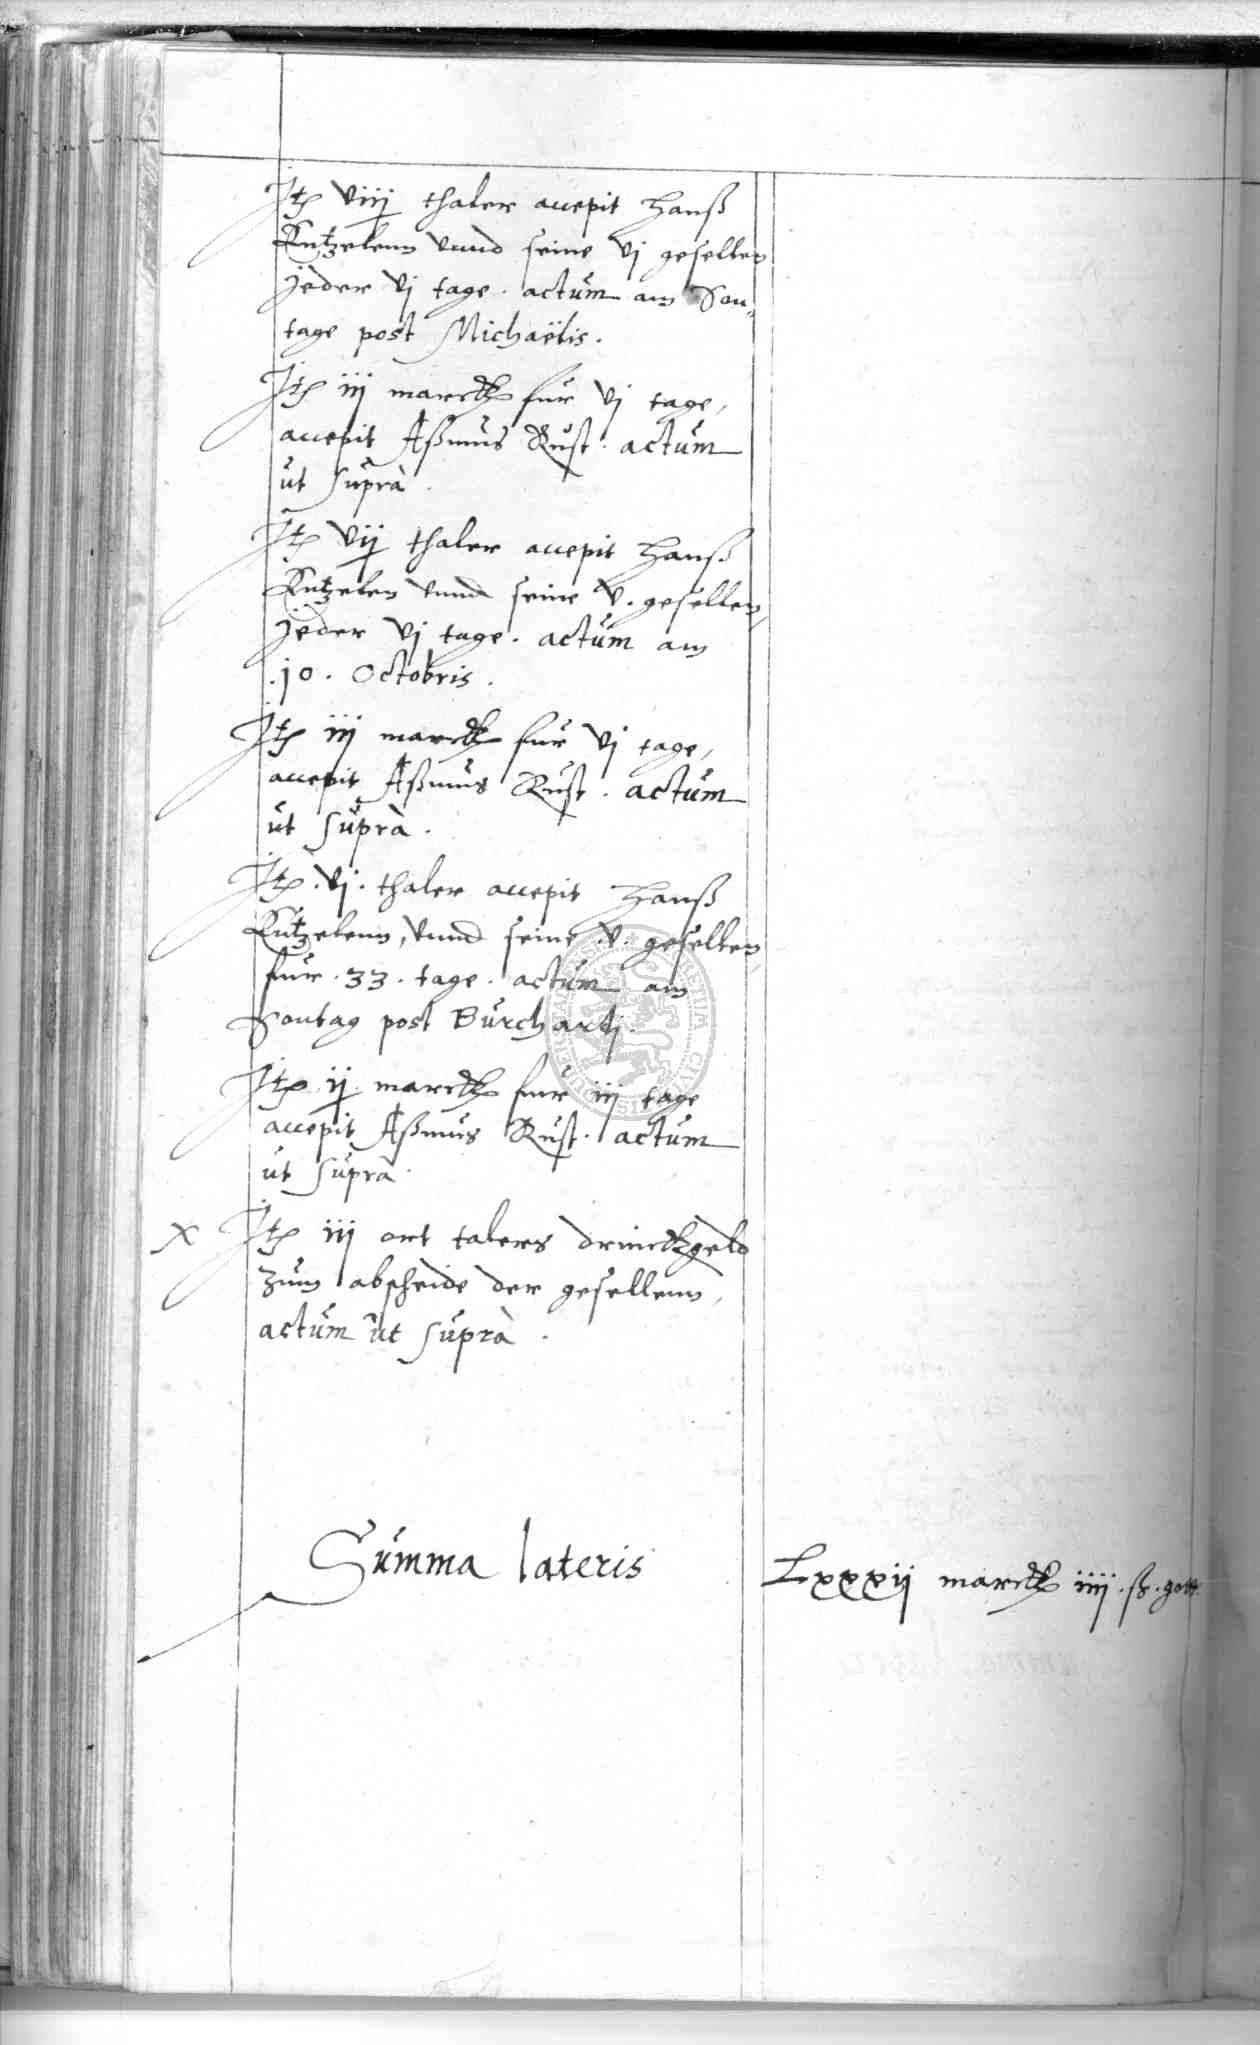 Jtē viij thaler accepit Hanß
Kutzelenn vnnd seine vj gesellen
jeder vj tage. actum am Son„
tage post Michaëlis.
Jtē iij marck fur vj tage,
accepit Aßmus Rust. actum
ut suprà.
Jtē vij thaler accepit Hanß
Kutzelen vnnd seine v. gesellen,
jeder vj tage. actum am
.10. Octobris.
Jtē iij marck fur vj tage,
accepit Aßmus Rust. actum
ut suprà.
Jtē .vj. thaler accepit Hanß
Kutzelenn, vnnd seine .v. gesellen,
fur .33. tage. actum am
Sontag post Burchartj.
Jtē ij marck fur iij tage
accepit Aßmus Rust. actum
ut suprà.
X Jtē iij ort talers drinckgeld
zum abscheide der gesellenn,
actum ut suprà.
Summa lateris Lxxxij marck iiij .ß. gott